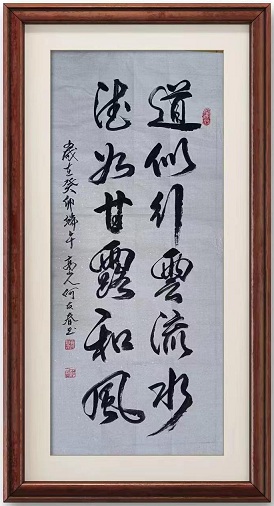 道似行雲流水
德如甘露和風
歲在癸卯 午 何友春書